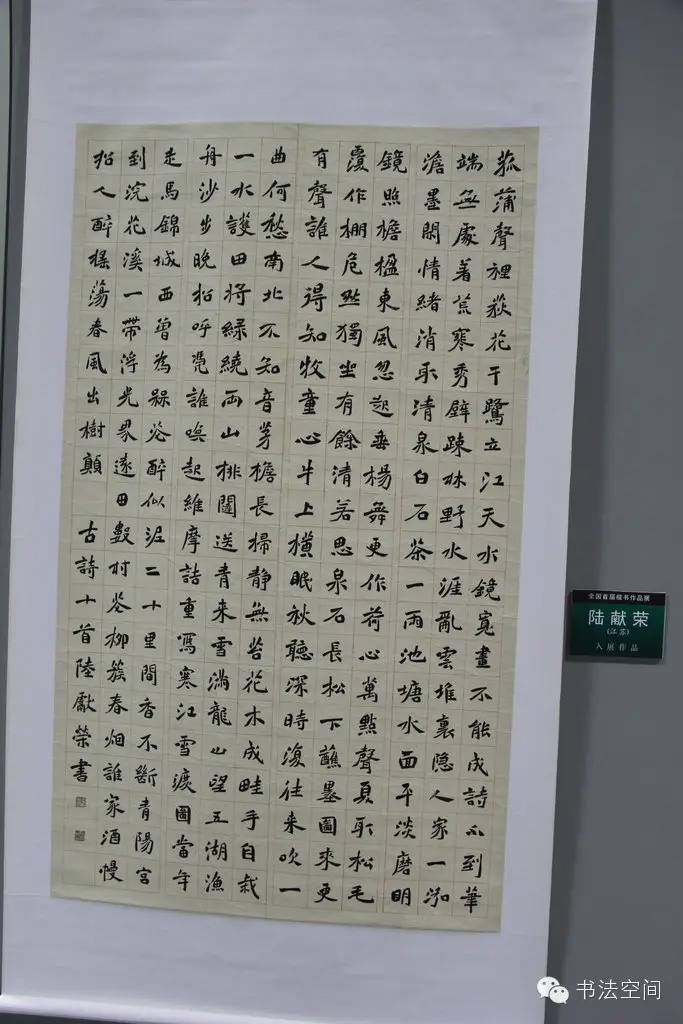 菰蒲聲裡荻花干鷺立江天水鏡寬畫不能成詩不到筆
端無處著荒寒秀壁疎林野水涯亂雲堆裏隐人家一泓
澹墨閑情緒消取清泉白石茶一雨池塘水面平淡磨明
鏡照檐楹東風忽起垂楊舞更作荷心萬點聲夏取松毛
覆作棚危然獨坐有餘清若思泉石長松下蘸墨圖來更
有聲誰人得知牧童心牛上橫眠秋聽深時復往來吹一
曲何愁南北不知音茅檐長掃靜無苔花木成畦手自栽
一水護田將綠繞兩山排闥送青來雪滿龍山望五湖漁
舟沙步晚招呼凭誰喚起維摩詰重寫寒江雪圖當年
走馬錦城西曾為槑花醉似泥二十里間香不斷青陽宮
到浣花溪一帶浮光界遠田數村花柳簇春烟誰家酒幔
招人醉搖蕩春風出樹顛 古詩十首陸獻榮書
全国首届楷书作品展
陆献荣
(江苏)
入展作品
书法空间